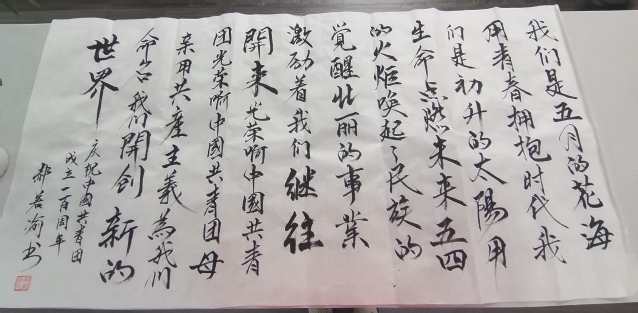 我们是五月的花海
用青春拥抱时代我
们是初升的太陽用
生命点燃未来五四
的火炬唤起了民族的
觉醒壮丽的事業
激励着我们继往
開来光荣啊中國共青
团光荣啊中國共青团母
亲用共產主義為我们
命名我们開创新的
世界
庆祝中國共青团
成立一百周年
郝书